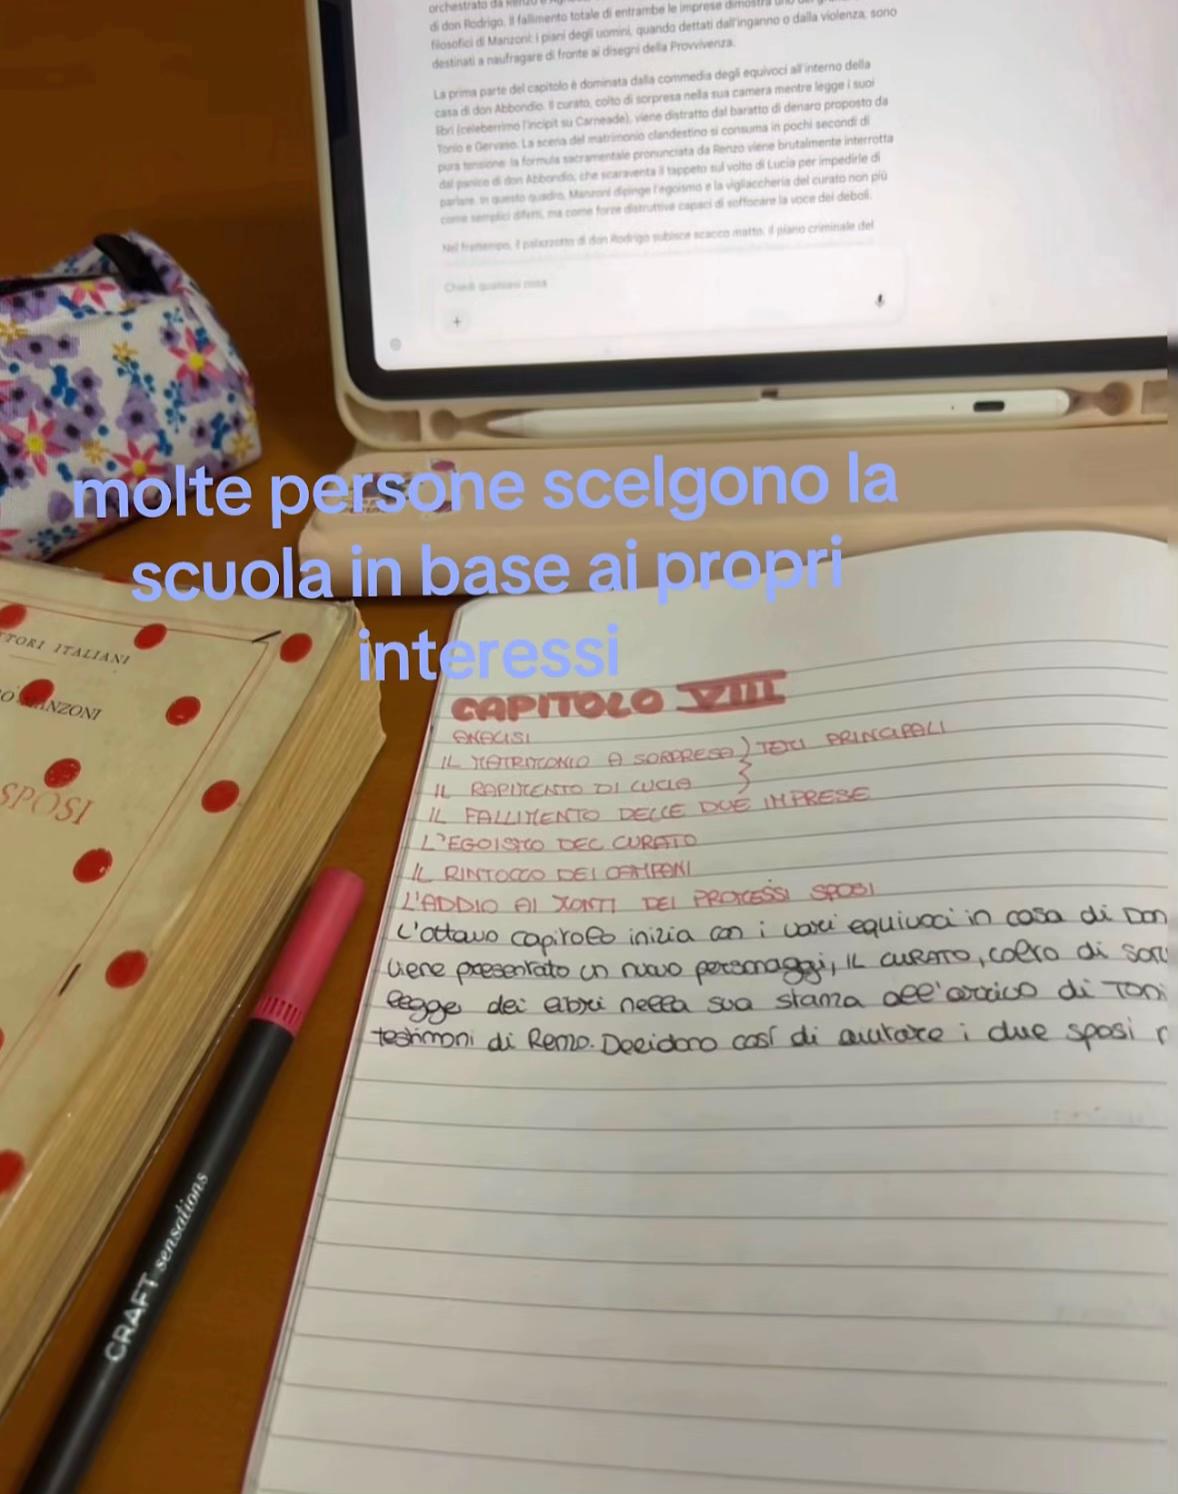 di don Rodrigo. Il fallimento totale di entrambe le imprese dimostra uno dei
filosofici di Manzoni: i piani degli uomini, quando dettati dall'inganno o dalla violenza, sono
destinati a naufragare di fronte ai disegni della Provvivenza.
La prima parte del capitolo è dominata dalla commedia degli equivoci all'interno della
casa di don Abbondio. Il curato, colto di sorpresa nella sua camera mentre legge i suoi
libri (celeberrimo l'incipit su Carneade), viene distratto dal baratto di denaro proposto da
Tonio e Gervaso. La scena del matrimonio clandestino si consuma in pochi secondi di
pura tensione: la formula sacramentale pronunciata da Renzo viene brutalmente interrotta
dal panico di don Abbondio, che scaraventa il tappeto sul volto di Lucia per impedirle di
parlare. In questo quadro, Manzoni dipinge l'egoismo e la vigliaccheria del curato non più
come semplici difetti, ma come forze distruttive capaci di soffocare la voce dei deboli.
Nel frattempo, il palazzotto di don Rodrigo subisce scacco matto. Il piano criminale del
Chiedi qualsiasi cosa
+
molte persone scelgono la
scuola in base ai propri
interessi
TTORI ITALIANI
MANZONI
SPOSI
CRAFT sensations
CAPITOLO VIII
ANALISI
IL MATRIMONIO A SORPRESA) TEMI PRINCIPALI
IL RAPIMENTO DI LUCIA
IL FALLIMENTO DELLE DUE IMPRESE
L'EGOISMO DEL CURATO
IL RINTOCCO DEI CAMPANI
L'ADDIO AI MONTI DEI PROMESSI SPOSI
L'ottavo capitolo inizia con i vari equivoci in casa di Don
viene presentato un nuovo personaggi, IL CURATO, colto di
legge dei libri nella sua stanza all'arrivo di Toni
testimoni di Renzo. Decidono così di aiutare i due sposi